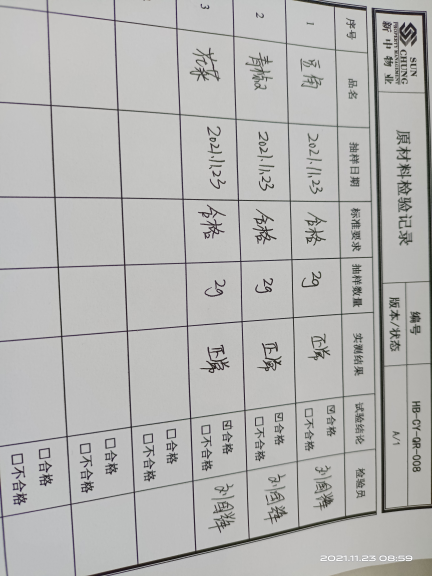 SUN CHUNG
PROPERTY MANAGEMENT
新中物业
原材料检验记录
编号 HB-CY-QR-008
版本/状态 A/1
序号 品名 抽样日期 标准要求 抽样数量 实测结果 试验结论 检验员
1 豆角 2021.11.23 合格 2g 正常 ☑合格 □不合格 刘国辉
2 青椒 2021.11.23 合格 2g 正常 ☑合格 □不合格 刘国辉
3 2021.11.23 合格 2g 正常 ☑合格 □不合格 刘国辉
□合格
□不合格
□合格
□不合格
□合格
□不合格
2021.11.23 08:59